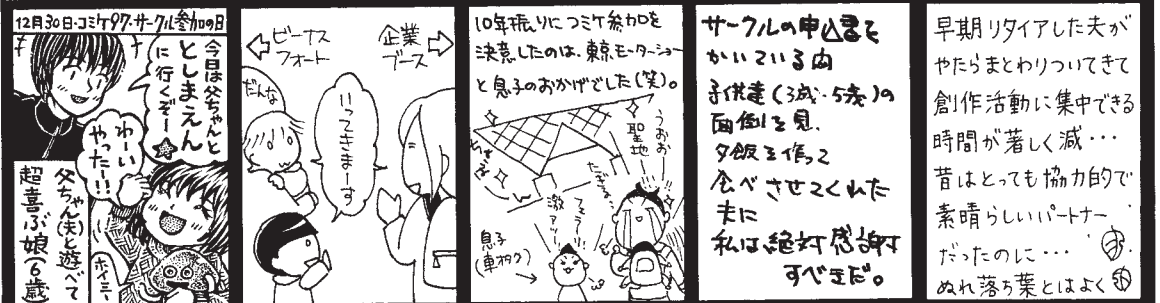 12月30日・コミケ97・サークル参加の日
今日は父ちゃんと
としまえん
に行くぞー☆
わーい
やったー!!
父ちゃん(夫)と遊べて
超喜ぶ娘(6歳
ホイミー
ビーナス
フォート
企業
ブース
だんな
いってきまーす
10年振りにコミケ参加を
決意したのは、東京モーターショー
と息子のおかげでした(笑)。
うおお
聖地
だぁぁ…
フェラーリ
激アツ
息子
(車オタク)
サークルの申込書を
かいている間
子供達(3歳・5歳)の
面倒を見、
夕飯を作って
食べさせてくれた
夫に
私は絶対感謝
すべきだ。
早期リタイアした夫が
やたらまとわりついてきて
創作活動に集中できる
時間が著しく減・・・
昔はとっても協力的で
素晴らしいパートナー
だったのに・・・
ぬれ落ち葉とはよく